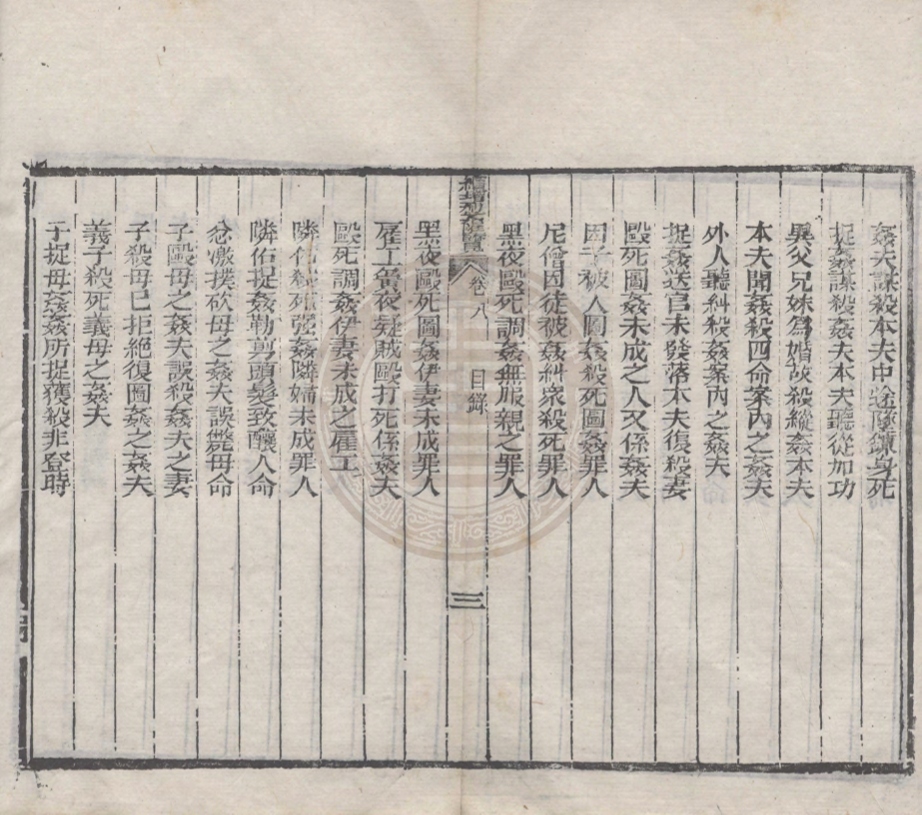 姦夫謀殺本夫中途身死
捉姦謀殺姦夫本夫聽從加功
異父兄妹爲婚故殺縱姦本夫
本夫聞姦殺四命案內之姦夫
外人聽糾殺姦案內之姦夫
捉姦送官未發落本夫復殺妻
毆死圖姦未成之人又係姦夫
因子被人圖姦殺死圖姦罪人
尼僧因徒被姦糾衆殺死罪人
黑夜毆死調姦無服親之罪人
續增刑案匯覽 卷八 目錄 三
黑夜毆死圖姦伊妻未成罪人
雇工夤夜疑賊毆打死係姦夫
毆死調姦伊妻未成之雇工人
隣佑殺死强姦隣婦未成罪人
隣佑捉姦勒剪頭髮致釀人命
忿激撲砍母之姦夫誤斃母命
子毆母之姦夫誤殺姦夫之妻
子殺母已拒絕復圖姦之姦夫
義子殺死義母之姦夫
子捉母姦姦所捉獲殺非登時